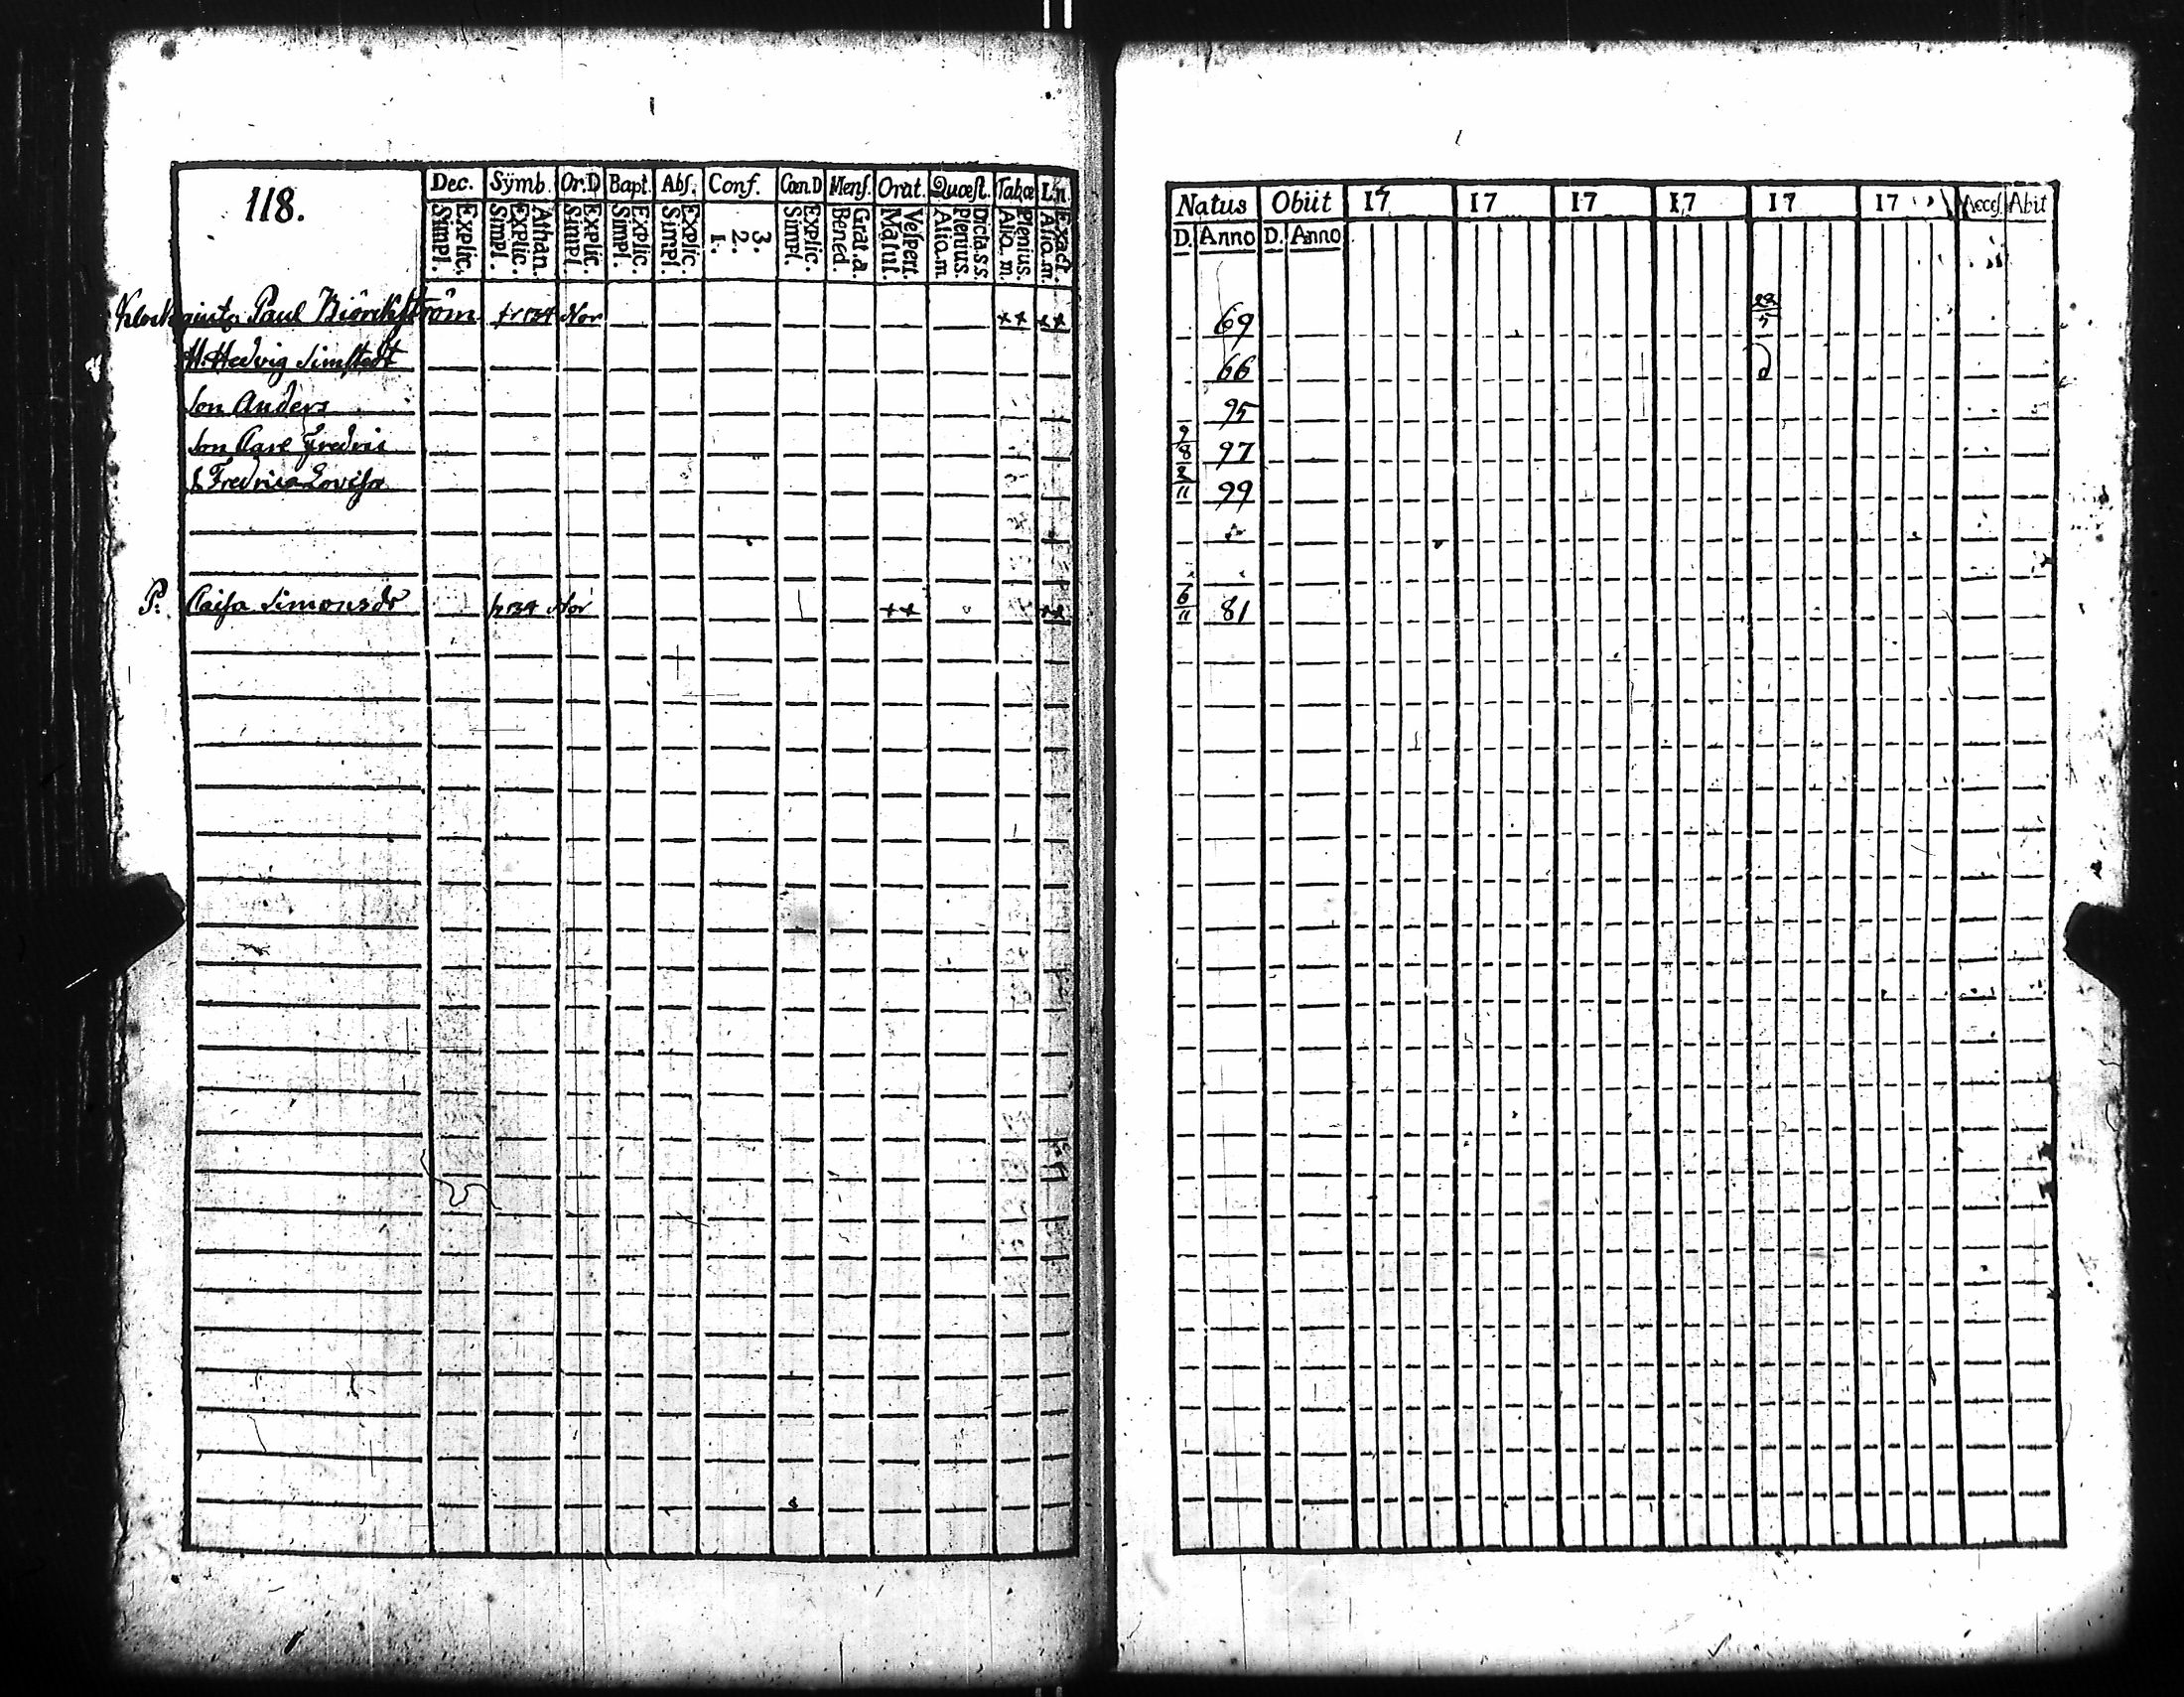 118.
Dec. Symb. Or.D Bapt. Abs. Conf. Cœn.D Mens. Orat. Quæst. Tabæ L.n.
Explic. Simpl. Athan. Explic. Simpl. Explic. Simpl. Explic. Simpl. Explic. Simpl. 3. 2. 1. Explic. Simpl. Grat.a. Bened. Vespert. Matut. Dicta.s.s. Plenius. Alio.m. Plenius. Alio.m. Exact. Alio.m.
Paul Biörckström
H. Hedvig Simstedt
son Anders
son Carl Fredric
d Fredrica Lovisa
P. Caisa Simonsdr
Natus Obiit 17 17 17 17 17 17 Acces. Abit
D. Anno D. Anno
69 22/5
66
95
9/8 97
2/11 99
6/11 81